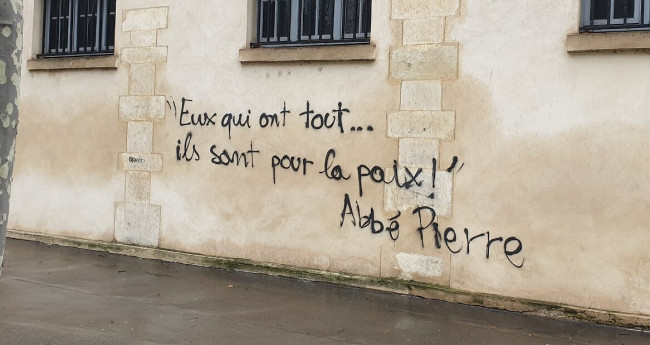 "Eux qui ont tout...
ils sont pour la paix!"
Abbé Pierre